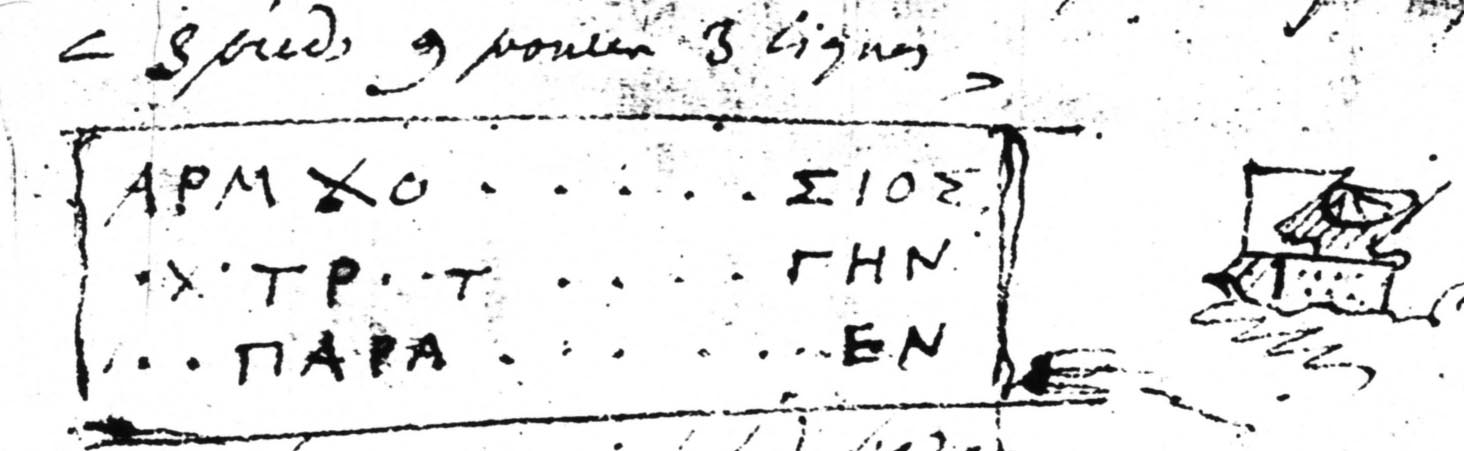 < 8 pieds 9 pouces 3 lignes >
ΑΡΜΧΟ . . . . . . ΣΙΟΣ
. Χ . ΤΡ . . Τ . . . . ΓΗΝ
. . . ΠΑΡΑ . . . . . . ΕΝ